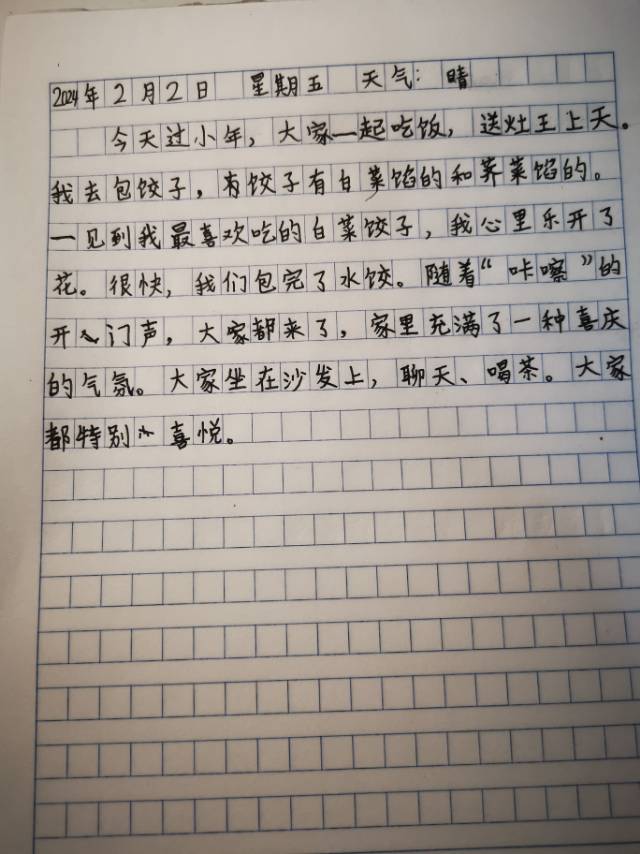 2024年2月2日 星期五 天气：晴
今天过小年，大家一起吃饭，送灶王上天。
我去包饺子，有饺子有白菜馅的和荠菜馅的。
一见到我最喜欢吃的白菜饺子，我心里乐开了
花。很快，我们包完了水饺。随着“咔嚓”的
开门声，大家都来了，家里充满了一种喜庆
的气氛。大家坐在沙发上，聊天、喝茶。大家
都特别喜悦。